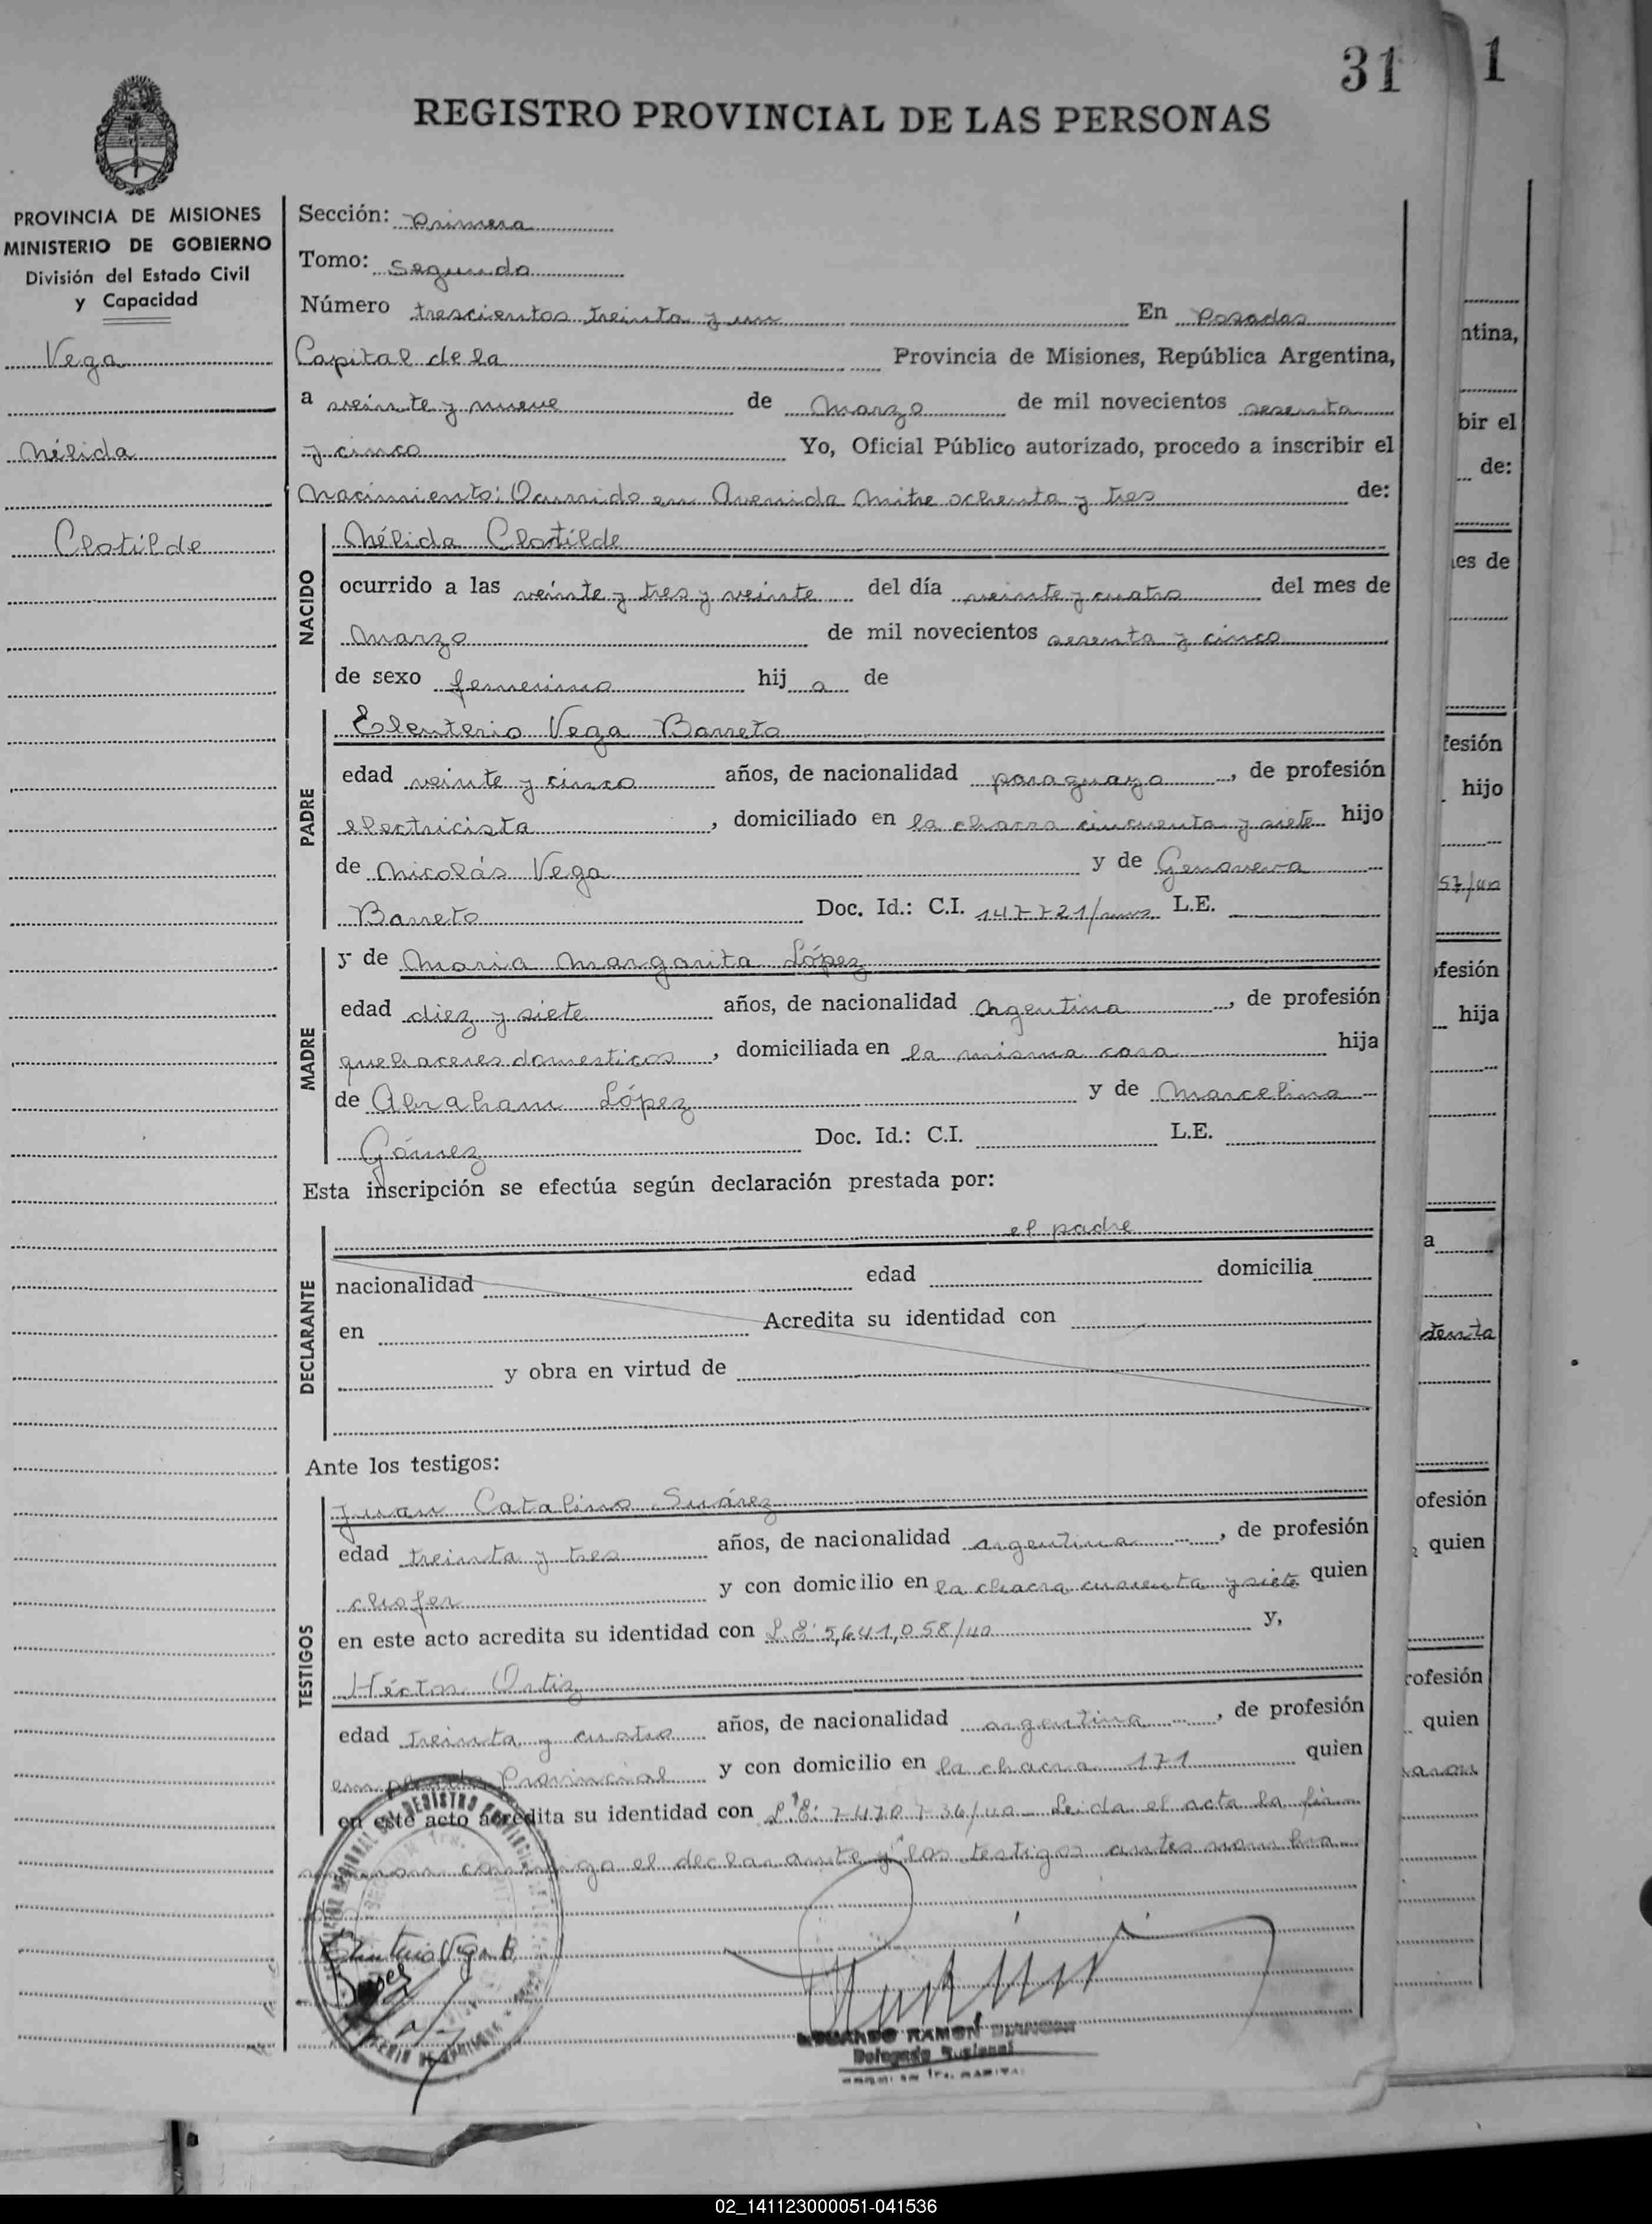 31
1
REGISTRO PROVINCIAL DE LAS PERSONAS
PROVINCIA DE MISIONES
MINISTERIO DE GOBIERNO
División del Estado Civil
y Capacidad
Vega
Nélida
Clotilde
Sección: primera
Tomo: segundo
Número trescientos treinta y un En Posadas
Capital de la Provincia de Misiones, República Argentina,
a veinte y nueve de Marzo de mil novecientos sesenta
y cinco Yo, Oficial Público autorizado, procedo a inscribir el
Nacimiento: Ocurrido en Avenida Mitre ochenta y tres de:
NACIDO
Nélida Clotilde
ocurrido a las veinte y tres y veinte del día veinte y cuatro del mes de
Marzo de mil novecientos sesenta y cinco
de sexo femenino hij a de
PADRE
Eleuterio Vega Barreto
edad veinte y cinco años, de nacionalidad paraguayo, de profesión
electricista, domiciliado en la chacra cincuenta y siete hijo
de Nicolás Vega y de Genoveva
Barreto Doc. Id.: C.I. 147721/ L.E.
MADRE
y de María Margarita López
edad diez y siete años, de nacionalidad Argentina, de profesión
quehaceres domesticos, domiciliada en la misma casa hija
de Abraham López y de Marcelina
Gómez Doc. Id.: C.I. L.E.
Esta inscripción se efectúa según declaración prestada por:
DECLARANTE
el padre
nacionalidad edad domicilia
en Acredita su identidad con
y obra en virtud de
Ante los testigos:
TESTIGOS
Juan Catalino Suárez
edad treinta y tres años, de nacionalidad argentina, de profesión
chofer y con domicilio en la chacra y siete quien
en este acto acredita su identidad con L.E. 5,641,058/ y,
Héctor Ortiz
edad treinta y cuatro años, de nacionalidad argentina, de profesión
empleado Provincial y con domicilio en la chacra 171 quien
en este acto acredita su identidad con L.E: Leida el acta la fir
conmigo el declarante y los testigos antes nombra
Eleuterio Vega B.
RAMON
Delegado Regional
ntina,
bir el
de:
es de
fesión
hijo
57/
ofesión
hija
a
tenta
ofesión
quien
rofesión
quien
02_141123000051-041536